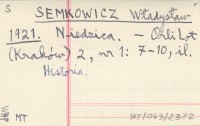 S
SEMKOWICZ Władysław
1921. Niedzica. — Orli Lot
(Kraków) 2, nr 1: 7-10, il.
Historia.
MT
BT/043/2372